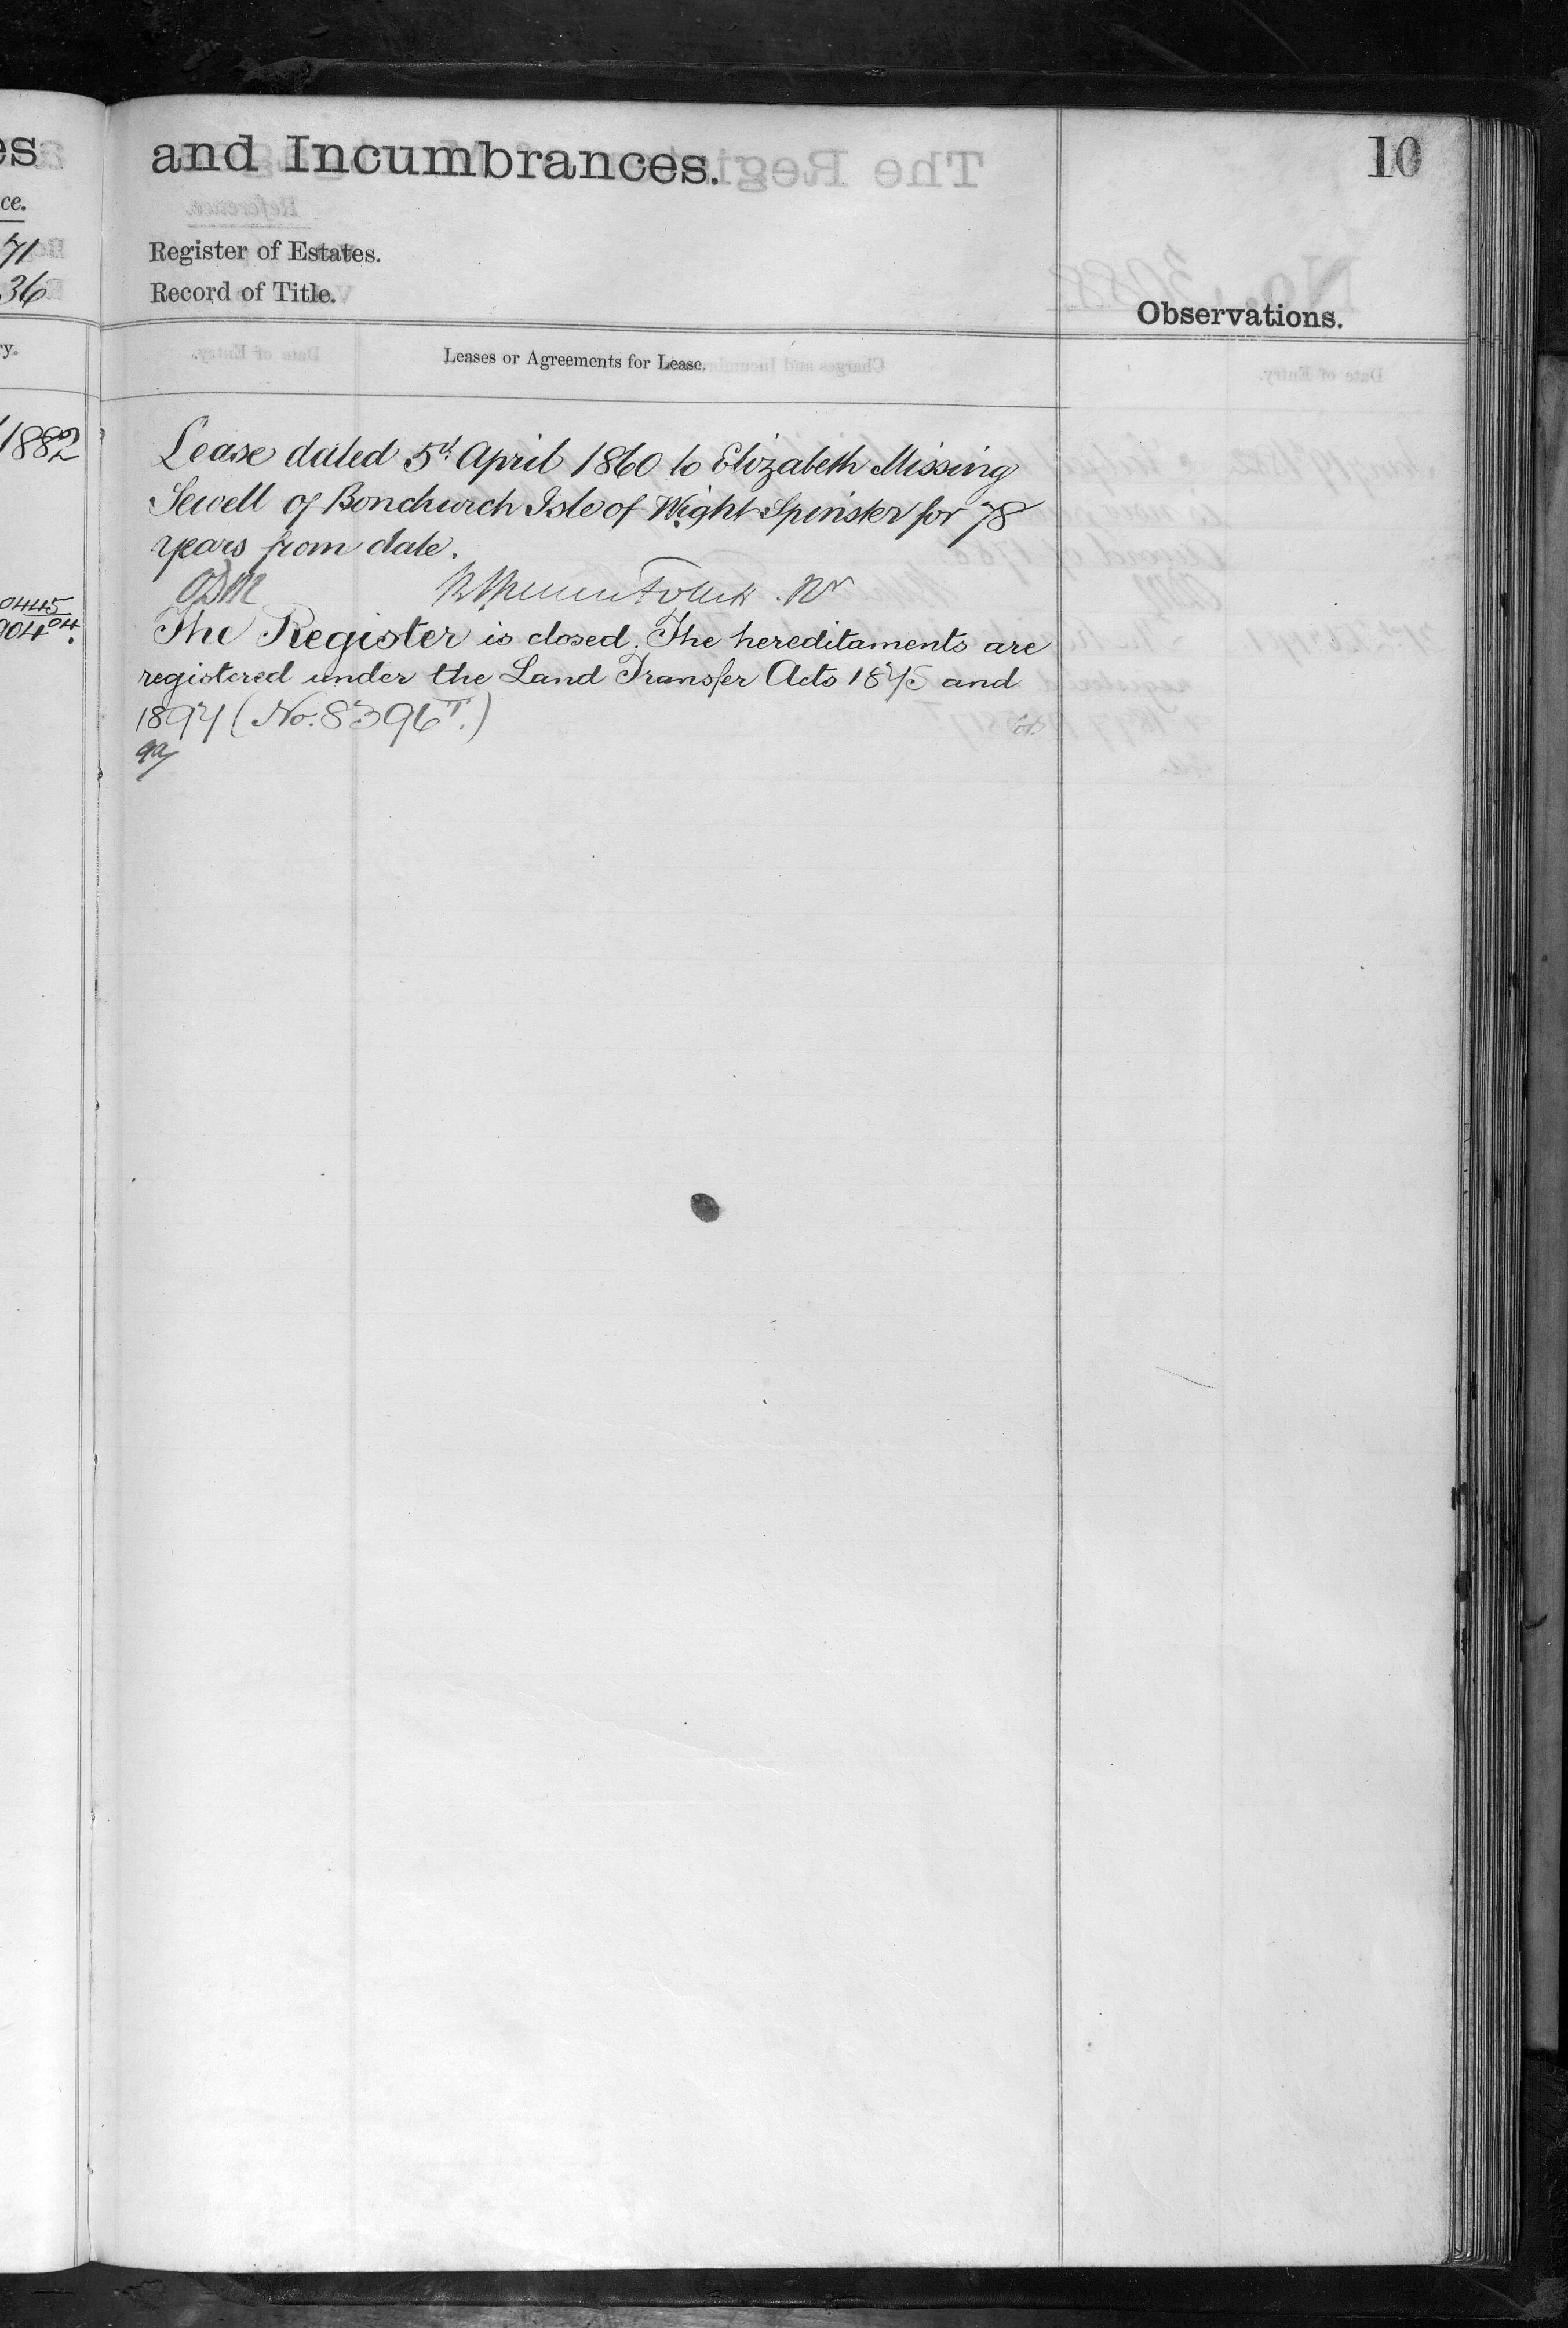 and Incumbrances.
10
Register of Estates.
Record of Title.
Observations.
Leases or Agreements for Lease.
Lease dated 5th April 1860 to Elizabeth Missing
Sewell of Bonchurch Isle of Wight Spinster for 78
years from date.
The Register is closed. The hereditaments are
registered under the Land Transfer Acts 1875 and
1897 (No. 8396T.)
es
ce.
71
36
ry.
1882